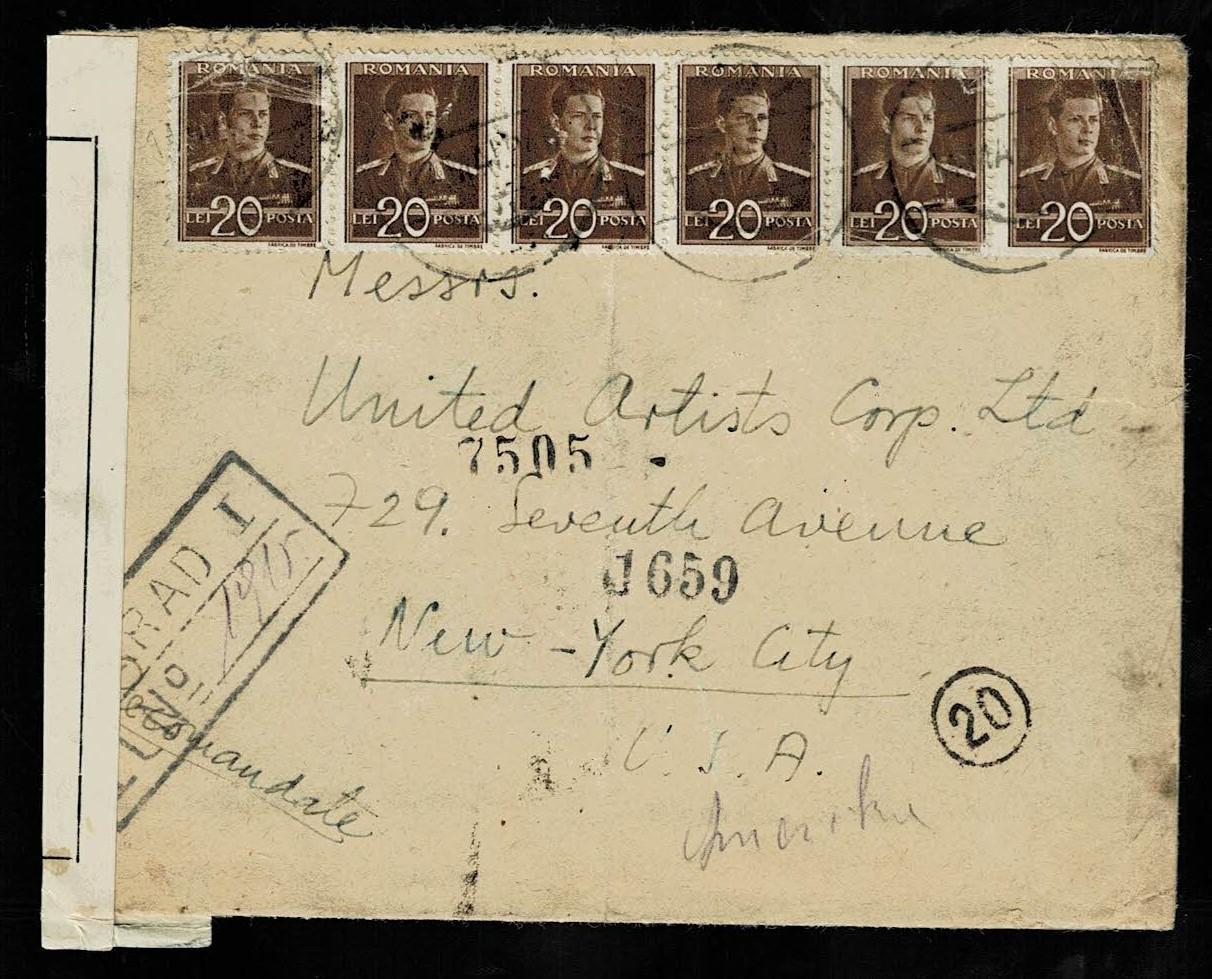 ROMANIA ROMANIA ROMANIA ROMANIA ROMANIA ROMANIA
LEI 20 POSTA LEI 20 POSTA LEI 20 POSTA LEI 20 POSTA LEI 20 POSTA LEI 20 POSTA
FABRICA DE TIMBRE FABRICA DE TIMBRE FABRICA DE TIMBRE FABRICA DE TIMBRE FABRICA DE TIMBRE FABRICA DE TIMBRE
Messrs.
United Artists Corp. Ltd
7505
729. Seventh Avenue
1659
New-York City
U.S.A.
20
RAD I
No 1915
Recomandate